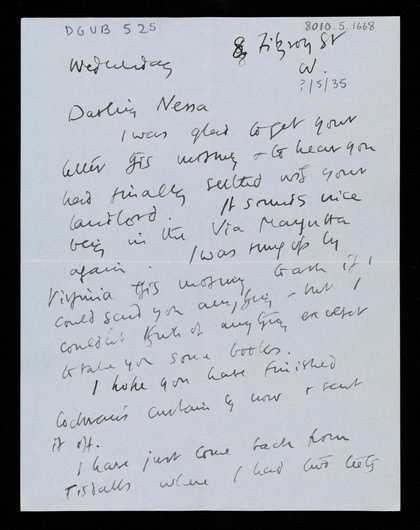 DGVB 525
8010.5.1668
8 Fitzroy St
W.
?/5/35
Wednesday
Darling Nessa
I was glad to get your
letter this morning & to hear you
had finally settled with your
landlord. It sounds nice
being in the Via Margutta
again. I was rung up by
Virginia this morning to ask if I
could send you anything – but I
couldn't think of anything except
to take you some books.
I hope you have finished
Cochran's curtain by now & sent
it off.
I have just come back from
Tisdalls where I had two